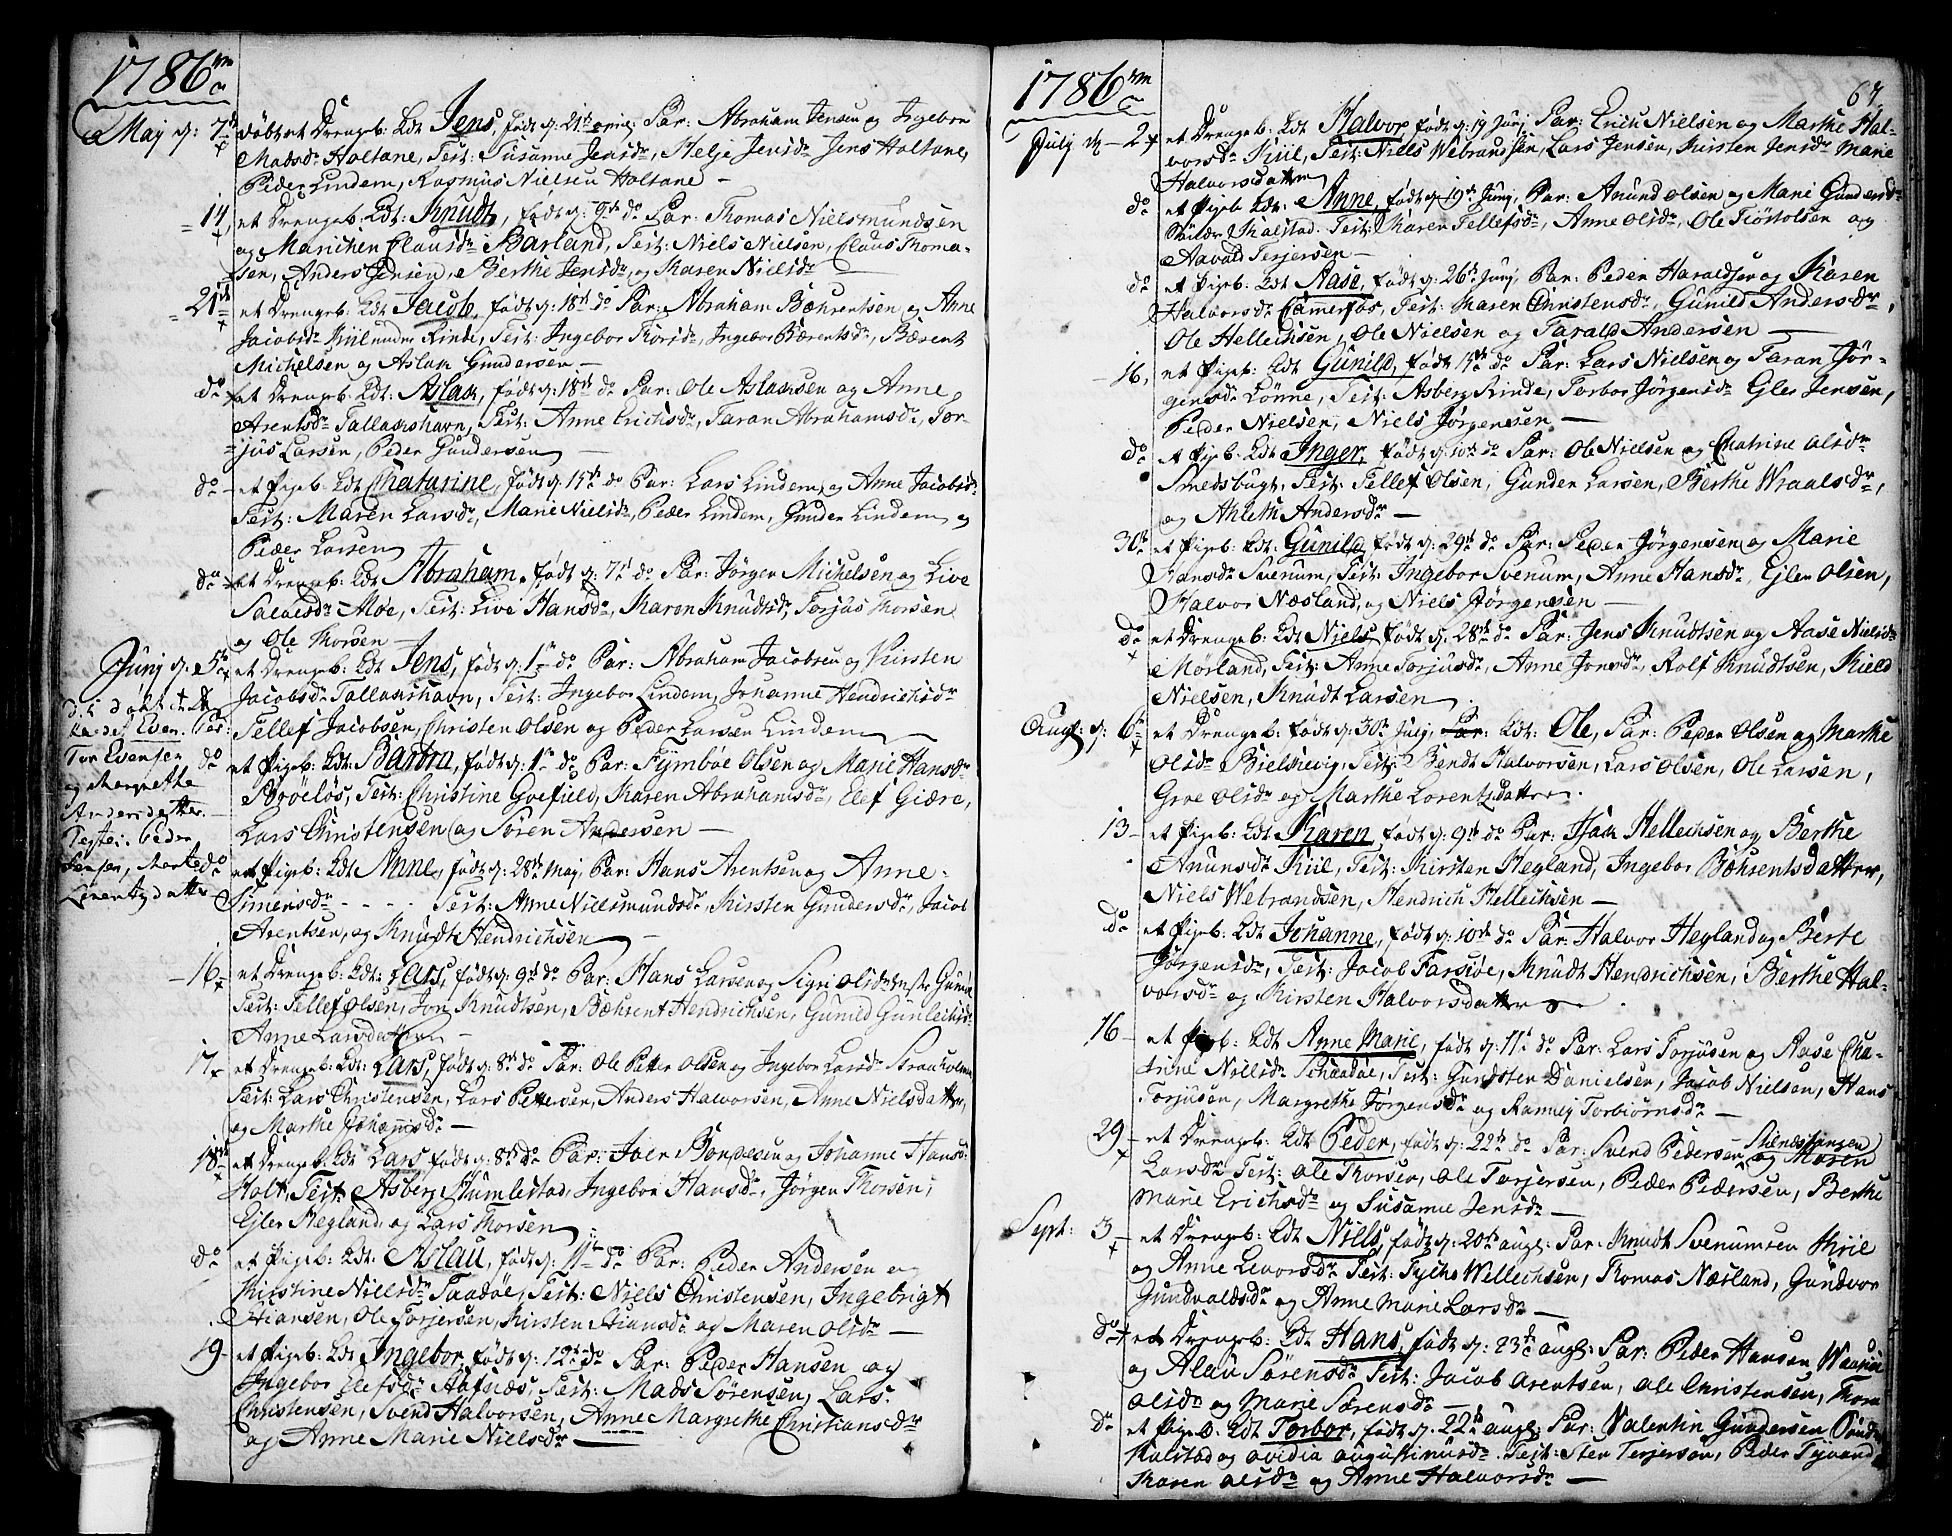 1786
Maj d: 7de døbt et Drengeb: kdt Jens, født d: 21de april, Par: Abraham Jensen og Ingebor
Madsdr Holtane, Test: Susanne Jensdr, Helje Jensdr, Jens Holtane,
Peder Lindem, Rasmus Nielsen Holtane —
14, et Drengeb: kdt: Knudt, født d: 9de do Par: Thomas Nielsmundsen
og Marichen Clausdr Barland, Test: Niels Nielsen, Claus Thoma-
sen, Anders Jensen, Berthe Jensdr, og Karen Nielsdr —
21de et Drengeb: kdt Jacob, født d: 18de do Par: Abraham Bæhrentsen og Anne
Jacobsdr Kiil under Rinde, Test: Ingebor Thorsdr, Ingebor Bærentsdr, Bærent
Michelsen og Aslak Gundersen —
do et Drengeb: kdt: Aslak, født d: 18de do Par: Ole Aslaksen og Anne
Arentsdr Tallakshavn, Test: Anne Erichsdr, Taran Abrahamsdr, Tor-
jus Larsen, Peder Gundersen
do et Pigeb: kdt Chatarine, født d: 15de do Par: Lars Lindem, og Anne Jacobsdr
Test: Maren Larsdr, Marie Nielsdr, Peder Lindem, Gunder Lindem og
Peder Larsen
do et Drengeb: kdt Abraham, født d: 7de do Par: Jørgen Michelsen og Live
Salvesdr Møe, Test: Live Hansdr, Karen Knudtsdr, Torjus Thorsen
og Ole Thorsen —
Junj d: 5te et Drengeb: kdt Jens, født d: 1ste do Par: Abraham Jacobsen og Kirsten
Jacobsdr Tallakshavn, Test: Ingebor Lindem, Johanne Hendrichsdr
Tellef Jacobsen, Christen Olsen og Peder Larsen Lindem
do et Pigeb: kdt: Barbra, født d: 1ste do Par: Fymboe Olsen og Marie Hansdr
Strøeløs, Test: Christine Goefield, Karen Abrahamsdr, Elef Giære,
Lars Christensen og Søren Andersen —
do et Pigeb: kdt Anne, født d: 28de Maj, Par: Hans Arentsen og Anne
Simensdr - - - - Test: Anne Nielsmundsdr, Kirsten Gundersdr, Jacob
Arentsen, og Knudt Hendrichsen —
kaldet Even. Par:
Tor Evensen
og Margrethe
Andersdatter.
Test: Peder
Jensen, Marte
Lorentzdatter
16 et Drengeb: kdt: Lars, født d: 9de do Par: Hans Larsen og Sigri Olsdr
Test: Tellef Olsen, Jon Knudtsen, Bæhrent Hendrichsen, Gunild Gunleichsdr
Anne Larsdatter —
17 et Drengeb: kdt: Lars, født d: 8de do Par: Ole Petter Olsen og Ingebor Larsdr Straaholmen
Test: Lars Christensen, Lars Pettersen, Anders Halvorsen, Anne Nielsdatter,
og Marthe Johannisdr —
18de et Drengeb: kdt Lars, født d: 8de do Par: Joer Bondesen og Johanne Hansdr
Holt, Test: Asberg Humlestad, Ingebor Hansdr, Jørgen Thorsen,
Ejler Hegland og Lars Thorsen
do et Pigeb: kdt: Aslau, født d: 11te do Par: Peder Andersen og
Kirstine Nielsdr Taadøe, Test: Niels Christensen, Ingebrigt
Stiansen, Ole Torjersen, Kirsten Stiansdr og Maren Olsdr —
19 et Pigeb: kdt Ingebor, født d: 12te do Par: Peder Hansen og
Ingebor Elefsdr Aafnæs, Test: Mads Sørensen, Lars
Christensen, Svend Halvorsen, Anne Margrethe Christiansdr
og Anne Marie Nielsdr —
67
1786
Julj d: 2 et Drengeb: kdt Halvor, født d: 19 Junj, Par: Erich Nielsen og Marthe Hal-
vorsdr Kiil, Test: Niels Webrandsen, Lars Jensen, Kirsten Jensdr Marie
Halvorsdatter
do et Pigeb kdt: Anne, født d: 19de Junj, Par: Amund Olsen og Marie Gundersdr
Kalstad. Test: Karen Tellefsdr, Anne Olsdr, Ole Tiøstolsen og
Havald Terjersen —
do et Pigeb: kdt Aase, født d: 26de Junj, Par: Peder Haraldsen og Karen
Halvorsdr Cammerfos, Test: Karen Christensdr, Gunild Andersdr,
Ole Hellechsen, Ole Nielsen og Tarald Andersen —
16, et Pigeb: kdt Gunild, født 15de do Par: Lars Nielsen og Taran Jør-
gensdr Lønne, Test: Asberg Rinde, Torbor Jørgensdr Ejler Jensen,
Peder Nielsen, Niels Jørgensen —
do et Pigeb: kdt Inger, født d: 10de do Par: Ole Nielsen og Chatrine Olsdr
Smedsbugt, Test: Tellef Olsen, Gunder Larsen, Berthe Wraalsdr,
og Ahleth Andersdr —
30te et Pigeb: kdt: Gunild født d: 29de do Par: Peder Jørgensen og Marie
Hansdr Svenum, Test: Ingebor Svenum, Anne Hansdr, Ejler Olsen,
Halvor Næsland, og Niels Jørgensen —
do et Drengeb: kdt Niels født d. 28de do Par: Jens Knudtsen og Aase Nielsdr
Mørland, Test: Anne Torjusdr, Anne Jonsdr, Rolf Knudtsen, Kield
Nielsen, Knudt Larsen
Augt: d: 6te et Drengeb: født d: 30te Julj, Par: kdt: Ole, Par: Peder Olsen og Marthe
Olsdr Bielkevig, Test: Bendt Halvorsen, Lars Olsen, Ole Larsen,
Groe Olsdr og Marthe Lorentzdatter.
13 et Pigeb: kdt Karen, født d: 9de do Par: Isak Hellechsen og Berthe
Amunsdr Kiil, Test: Kirsten Hegland, Ingebor Bæhrentsdatter,
Niels Webrandsen, Hendrich Hellechsen —
do et Pigeb: kdt Johanne, født d: 10de do Par: Halvor Hegland og Berte
Jørgensdr, Test: Jacob Farsiøe, Knudt Hendrichsen, Berthe Hal-
vorsdr og Kirsten Halvorsdatter
16 et Pigeb: kdt Anne Marie, født d: 11te do Par: Lars Torjusen og Aase Cha-
trine Nielsdr Schaadøe, Test: Gundsten Danielsen, Jacob Nielsen, Hans
Torjusen, Margrethe Jørgensdr og Ramnej Torbiørnsdr —
29 et Drengeb: kdt Peder, født d: 22de do Par: Svend Pedersen Steenstangen og Maren
Larsdr Test: Ole Thorsen, Ole Torjersen, Peder Pedersen, Berthe
Marie Erichsdr og Susanne Jensdr —
Sept: 3 et Drengeb: kdt Niels, født d: 20de augt: Par: Knudt Svenumsen Kiil
og Anne Levorsdr Test: Tycho Wellechsen, Thomas Næsland, Gundvor
Gundvaldsdr og Anne Marie Larsdr —
do et Drengeb: kdt Hans, født d: 23de augt: Par: Peder Hansen
og Alau Sørensdr Test: Jacob Arentsen, Ole Christensen, Thora
Olsdr og Marie Sørensdr —
do et Pigeb: kdt Torbor, født d. 22de augt: Par: Valentin Gundersen
Kalstad og Ovidia Augustinusdr. Test: Sten Terjersen, Peder Tyvand,
Karen Olsdr og Anne Halvorsdr —